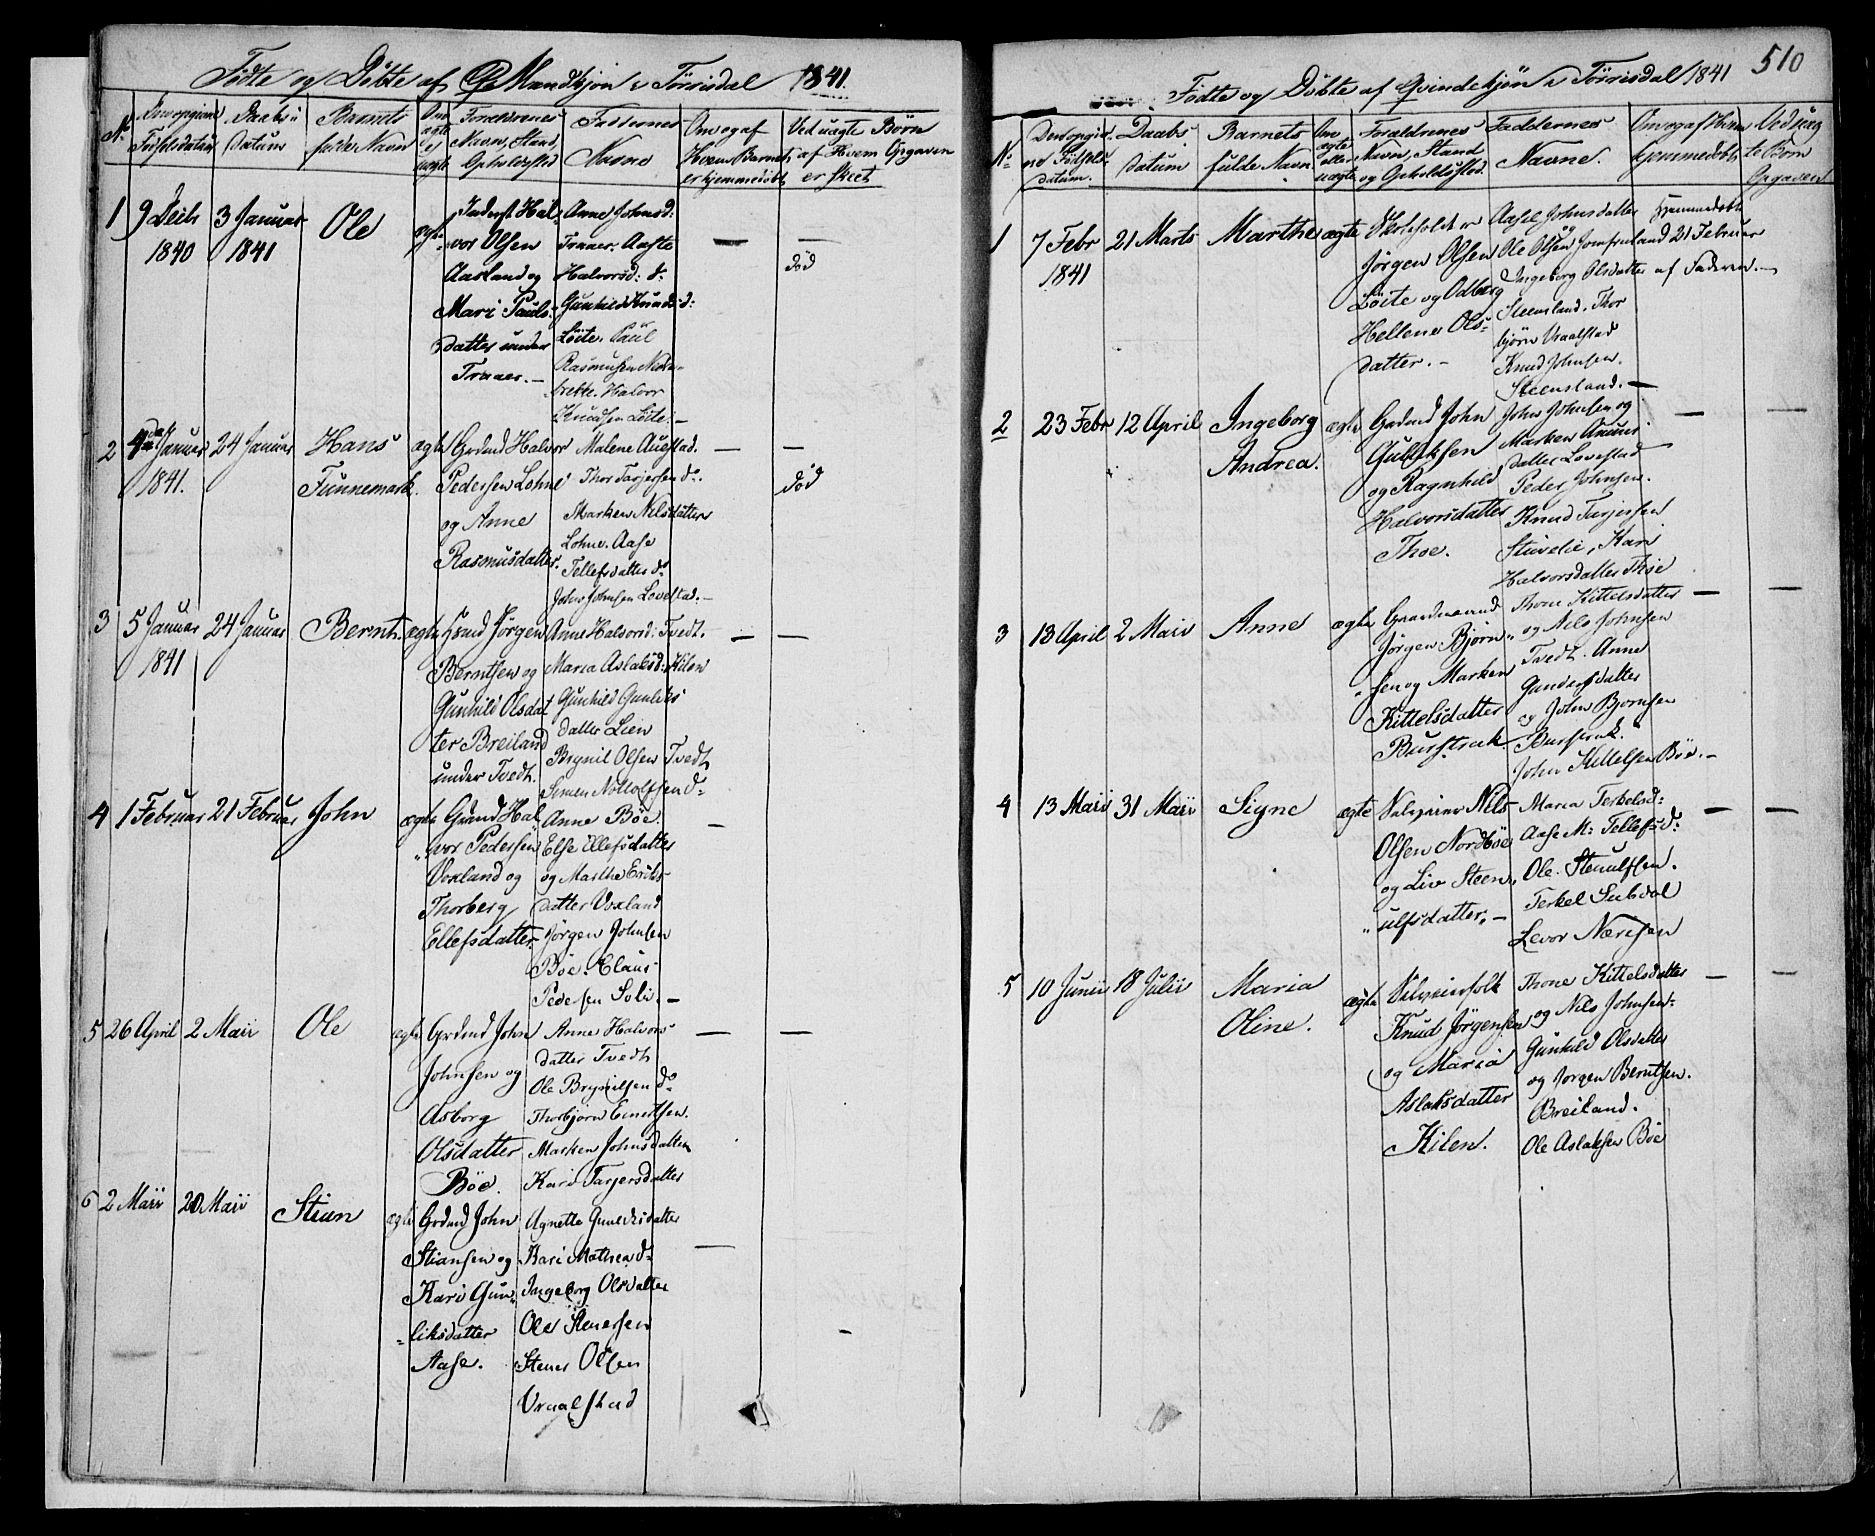 Fødte og Døbte af Mandkjøn i Tørrisdal 1841.
No
Den opgivne Fødselsdatum
Daabs Datum
Barnets fulde Navn
Om ægte el. uægte
Forældrenes Navn, Stand, Opholdssted
Faddernes Navne
Om og af Hvem Barnet er hjemmedøbt
Ved uægte Børn af Hvem Opgaven er skeet
1
9 Decbr
1840
3 Januar
1841
Ole
ægte
Inderst Hal-
vor Olsen
Aasland og
Mari Pauls-
datter under
Traaer.—
Anne Johnsd:
Traaer, Aaste
Halvorsd: do
Gunhild Knudsd:
Løite. Paul
Rasmussen
Halvor
Knudsen Løite.—
—
—
død
2
4de Januar
1841.
24 Januar
Hans
Funnemark.
ægte
Grdmd Halvor
Pedersen Lohne
og Anne
Rasmusdatter.
Malene Auestad.
Thor Tarjersen do.
Marken Nilsdatter
Lohne. Aase
Tellefsdatter do
John Johnsen Lovestad.—
—
—
død
3
5 Januar
1841
24 Januar
Bernt.
ægte
Hsmd Jørgen
Berntsen og
Gunhild Olsdat
ter Breiland
under Tvedt.
Anne Halvorsd: Tvedt.
Maria Aslaksd: Kilen
Gunhild Gunleks
datter Lien
Brynil Olsen Tvedt
Simen Nottolfsen do
—
—
4
1 Februar
21 Februar
John
ægte
Grdmd Hal
vor Pedersen
Voxland og
Thorberg
Ellefsdatter
Anne Bøe
Else Ellefsdatter
og Marthe Eriks-
datter Voxland
Jørgen Johnsen
Bøe. Claus
Pedersen Solli.—
—
5
26 April
2 Maii
Ole
ægte
Grdmd John
Johnsen og
Asborg
Olsdatter
Bøe.
Anne Halvors-
datter Tvedt
Ole Brynilsen do
Thorbjørn Evertsen.
Marken Johnsdatter
Kari Tarjersdatter
—
—
6
2 Maii
20 Maii
Stian
ægte
Grdmd John
Stiansen og
Kari Gun-
liksdatter
Aase.
Agnette Gunleksdatter
Kari Mathea do
Ingeborg Olsdatter
Ole Stenersen
Stener Olsen
Vraalstad
—
-
510
Fødte og Døbte af Qvindekjøn i Tørrisdal 1841
No
Den opgiv-
ne Fødsels-
datum.
Daabs-
datum
Barnets
fulde Navn
Om ægte eller uægte
Forældrenes
Navn, Stand
og Opholdssted.
Faddernes
Navne.
Om og af Hvem
hjemmedøbt
Ved uæg-
te Børn
Opgaven
1
7 Febr
1841
21 Marts
Marthe
ægte
Skoleholder
Jørgen Olsen
Løite og Odberg
Hellene Ols-
datter.—
Aasel Johnsdatter
og
Ole Olsen Jomfruland
Ingeborg Olsdatter
Steensland, Thor
bjørn Vraalstad
Knud Johnsen
Steensland.—
Hjemmedøbt
21 Februar
af Faderen.—
2
23 Febr
12 April
Ingeborg
Andrea.
ægte
Grdmd John
Gulliksen
og Ragnhild
Halvorsdatter
Thoe.
John Johnsen og
Marken Amun-
datter Lovestad
Peder Johnsen.
Knud Tarjersen
Stuvelie, Kari
Halvorsdatter Thoe
—
—
3
13 April
2 Maii
Anne
ægte
Gaardmand
Jørgen Bjørn-
sen og Marken
Kittelsdatter
Burstrak
Thone Kittelsdatter
og Nils Johnsen
Tvedt. Anne
Gundersdatter
og John Bjørnsen
Burstrak.
John Kittelsen Bøe.—
—
—
4
13 Maii
31 Maii
Signe
ægte
Selveier Nils
Olsen Nordbøe
og Liv Steen-
ulfsdatter.—
Maria Terkelsd:
Aase M: Tellefsd:
Ole Stenulfsen.
Terkel Subdal
Levor Nærisen
—
—
5
10 Junii
18 Julii
Maria
Oline.
ægte
Selveierfolk
Knud Jørgensen
og Maria
Aslaksdatter
Kilen.
Thone Kittelsdatter
og Nils Johnsen-
Gunhild Olsdatter
og Jørgen Berntsen.
Breiland.
Ole Aslaksen Bøe
—
—